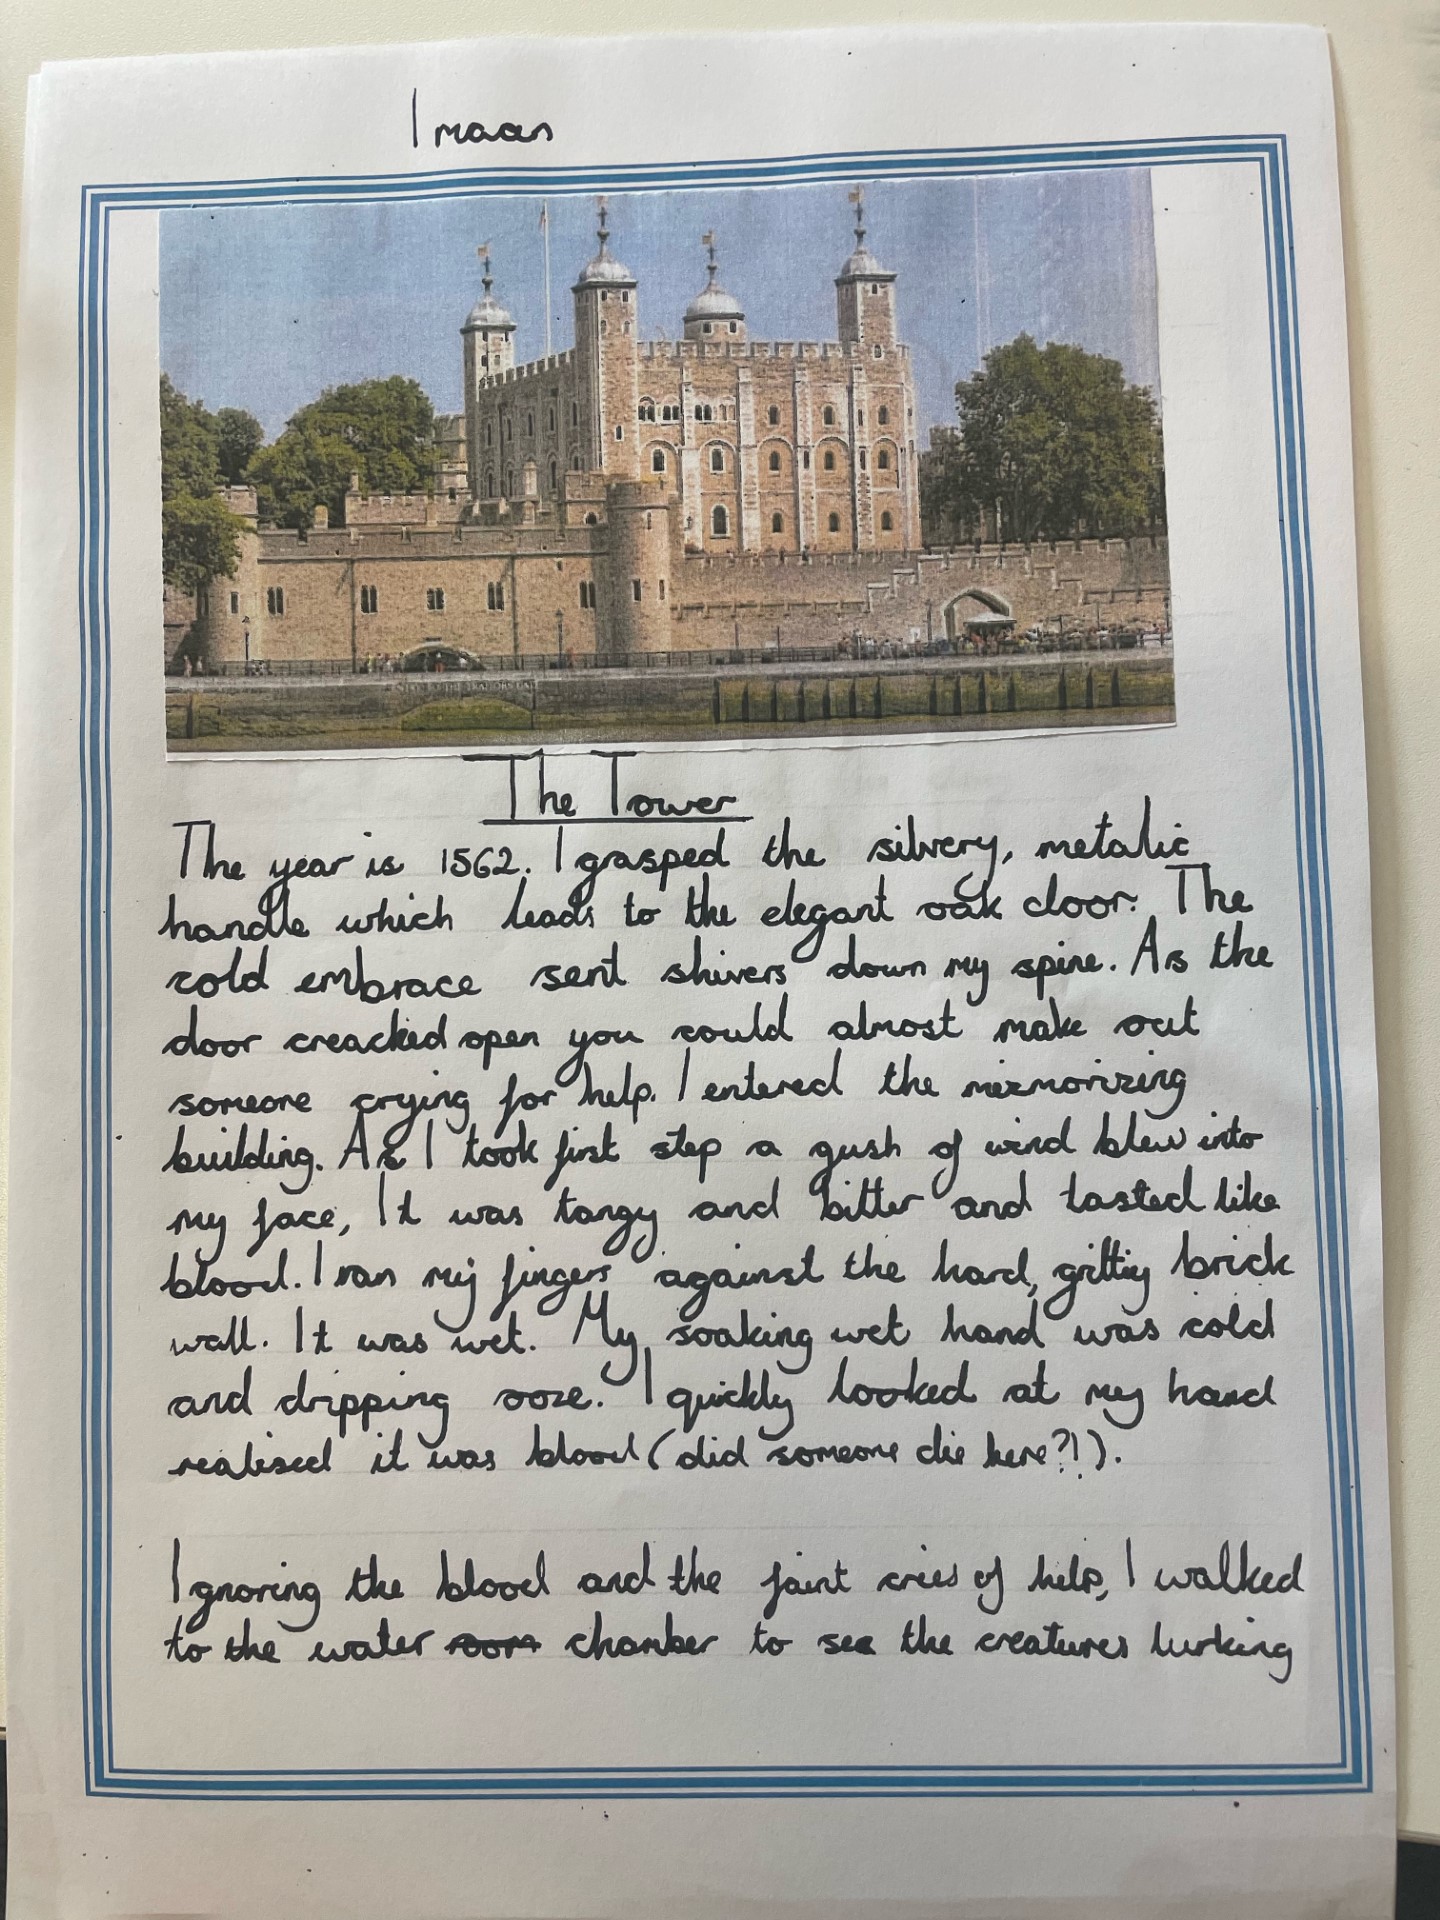 Imaan
The Tower
The year is 1562. I grasped the silvery, metalic
handle which leads to the elegant oak door. The
cold embrace sent shivers down my spine. As the
door creacked open you could almost make out
someone crying for help. I entered the mezmorizing
building. As I took first step a gush of wind blew into
my face, It was tangy and bitter and tasted like
blood. I ran my fingers against the hard, grittiy brick
wall. It was wet. My soaking wet hand was cold
and dripping ooze. I quickly looked at my hand
realised it was blood (did someone die here?!).
Ignoring the blood and the faint cries of help, I walked
to the water room chamber to see the creatures lurking